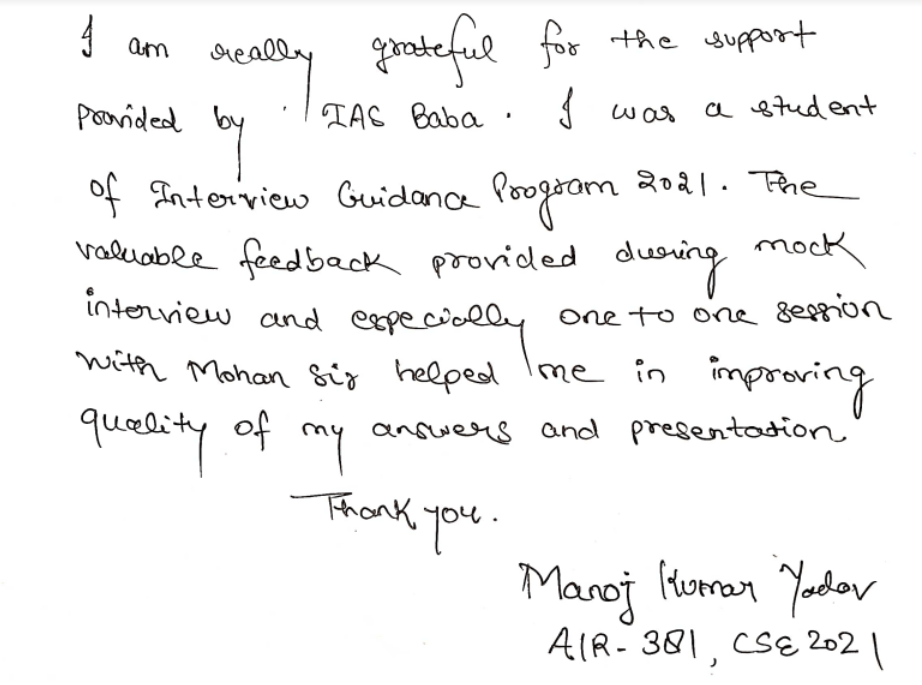 I am really grateful for the support
provided by IAS Baba. I was a student
of Interview Guidance Program 2021. The
valuable feedback provided during mock
interview and especially one to one session
with Mohan Sir helped me in improving
quality of my answers and presentation.
Thank you.
Manoj Kumar Yadav
AIR-381, CSE 2021